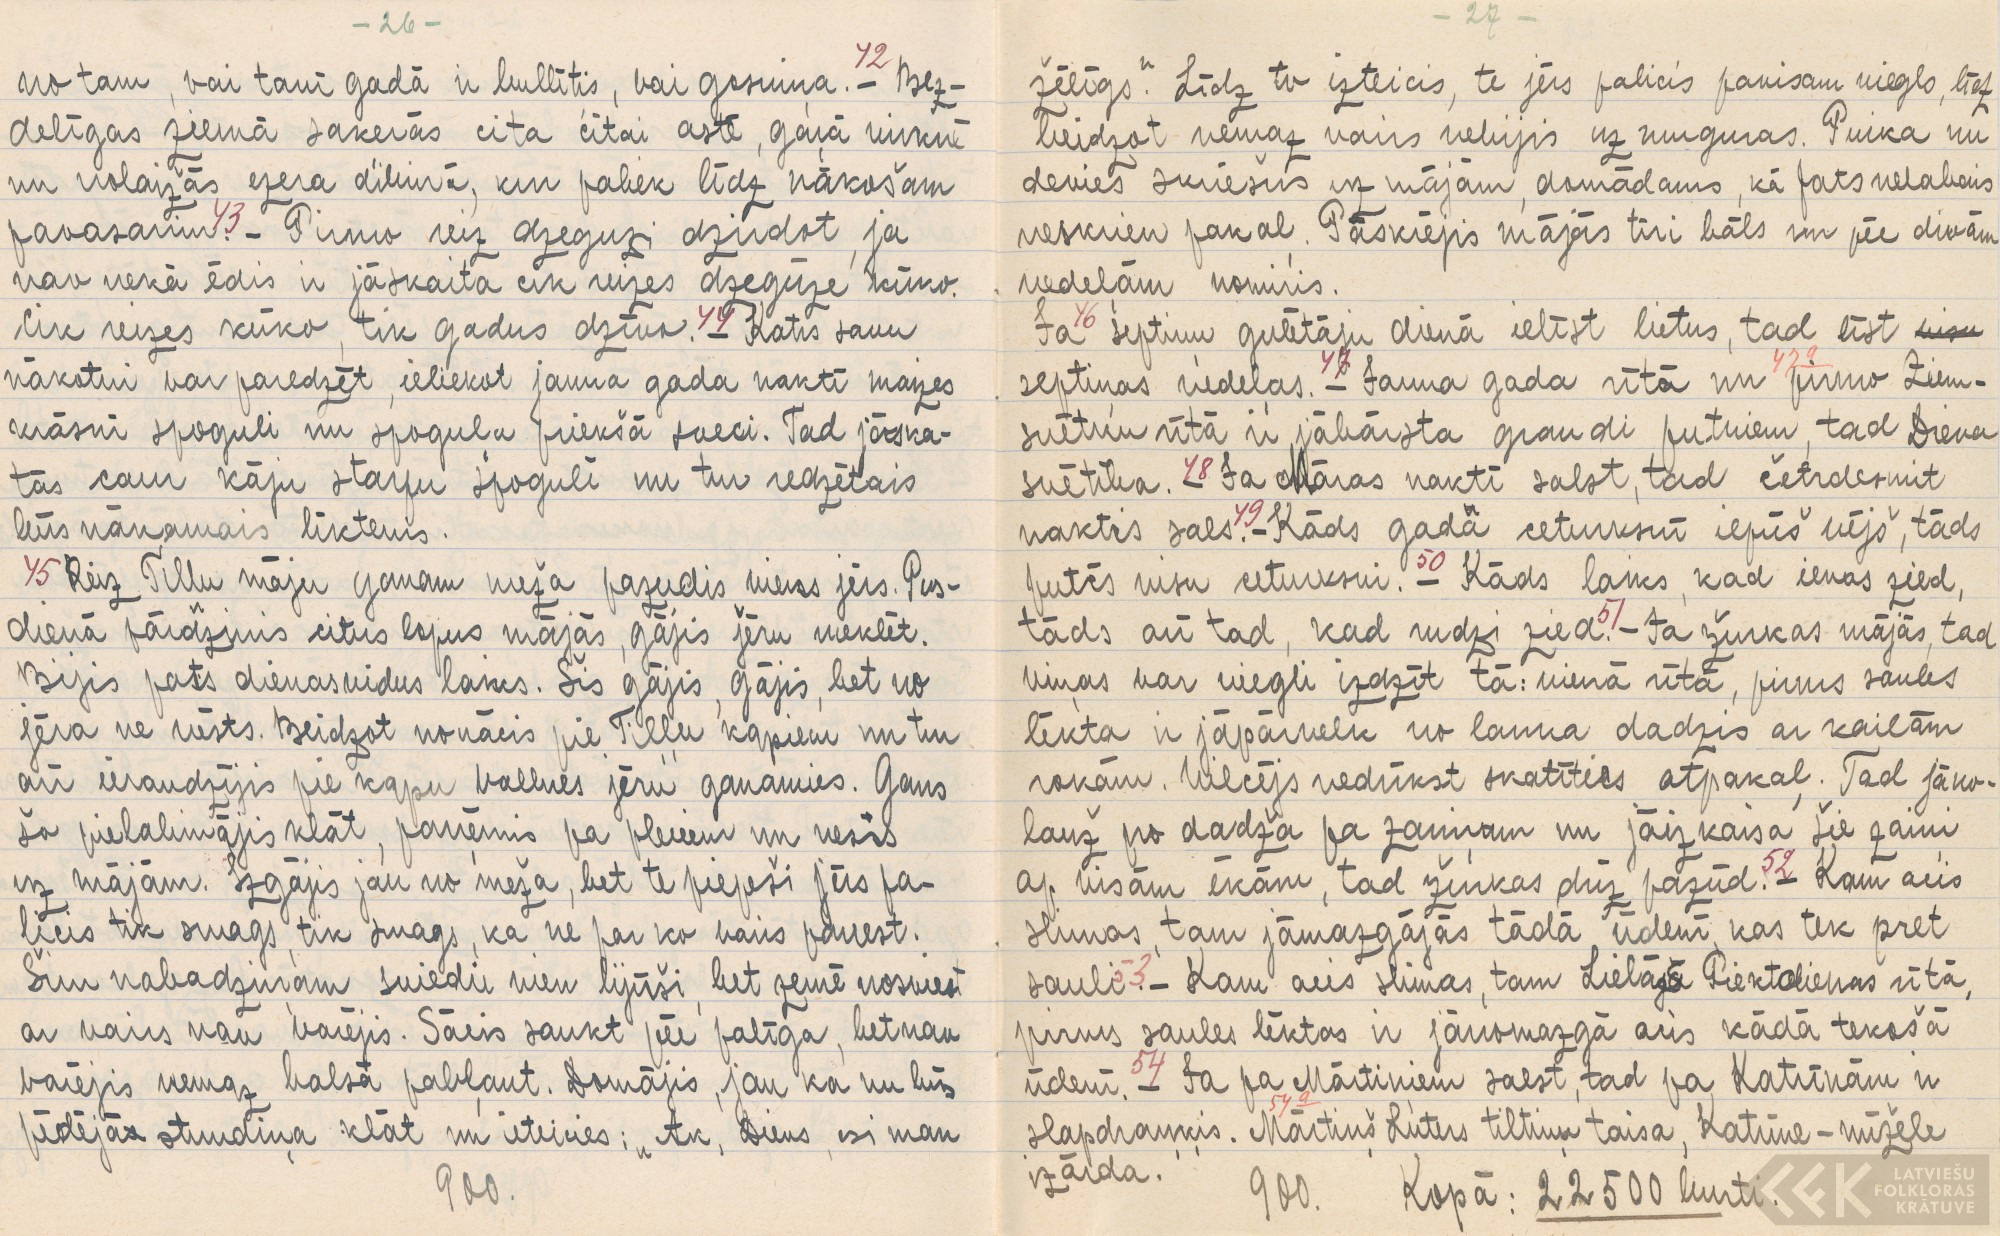 - 26 -
no tam, vai tanī gadā ir bullītis, vai gosniņa. 42 - Bez-
delīgas ziemā sakerās cita citai astē, gaŗā virknē
un nolaižās ezera dibinā, kur paliek līdz nākošam
pavasarim. 43 - Pirmo reiz dzeguzi dzirdot, ja
nav nekā ēdis ir jāskaita cik reizes dzegūze kūko.
Cik reizes kūko, tik gadus dzīvo. 44 - Katrs savu
nākotni var paredzēt, ieliekot jauna gada naktī maizes
krāsnī spoguli un spoguļa priekšā sveci. Tad jāska-
tās caur kāju starpu spogulī un tur redzētais
būs nākamais liktenis.
45 Reiz Tiļļu māju ganam mežā pazudis viens jērs. Pus-
dienā pārdzinis citus lopus mājās, gājis jēru meklēt.
Bijis pats dienasvidus laiks. Šis gājis, gājis, bet no
jēra ne vēsts. Beidzot nonācis pie Tiļļu kapiem un tur
arī ieraudzījis pie kapu vallnes jēru ganamies. Gans
šo pielabinājis klāt, paņēmis pa pleciem un nesis
uz mājām. Izgājis jau no meža, bet te piepeši jērs pa-
licis tik smags, tik smags, ka ne par ko vairs panest.
Šim nabadziņam sviedri vien lijuši, bet zemē nosviest
ar vairs nav varējis. Sācis saukt pēc palīga, bet nav
varējis nemaz balsā pabļaut. Domājis, jau ka nu būs
pēdējā stundiņa klāt un ieteicies: „Ak, Dievs, esi man
900.
- 27 -
žēlīgs". Līdz to izteicis, te jērs palicis pavisam viegls, līdz
beidzot nemaz vairs nebijis uz muguras. Puika nu
devies skriešus uz mājām, domādams, kā pats nelabais
neskrien pakaļ. Pārskrējis mājās tīri bāls un pēc divām
nedeļām nomiris.
46 Ja septiņu gulētāju dienā ielīst lietus, tad līst visu
septiņas nedeļas. 47 - Jauna gada rītā un 47a pirmo Ziem-
svētku rītā ir jābārsta graudi putniem, tad Dieva
svētība. 48 - Ja Māras naktī salst, tad četrdesmit
naktis sals. 49 - Kāds gadā ceturksnī iepūš vējš, tāds
putēs visu ceturksni. 50 - Kāds laiks, kad ievas zied,
tāds arī tad, kad rudzi zied. 51 - Ja žurkas mājās, tad
viņas var viegli izdzīt tā: vienā rītā, pirms saules
lēkta ir jāpārvelk no lauka dadzis ar kailām
rokām. Vilcējs nedrīkst skatīties atpakaļ. Tad jāno-
lauž no dadža pa zariņam un jāizkaisa šie zariņi
ap visām ēkām, tad žurkas drīz pazūd. 52 - Kam acis
slimas, tam jāmazgājās tādā ūdenī, kas tek pret
sauli. 53 - Kam acis slimas, tam Lielājā Piektdienas rītā,
pirms saules lēktas ir jānomazgā acis kādā tekošā
ūdenī. 54 - Ja pa Mārtiņiem salst, tad pa Katrīnām ir
slapdraņķis. 54a Mārtiņš Luters tiltiņu taisa, Katrīne-mīžele
izārda.
900. Kopā: 22500 burti.
LATVIEŠU
FOLKLORAS
KRĀTUVE